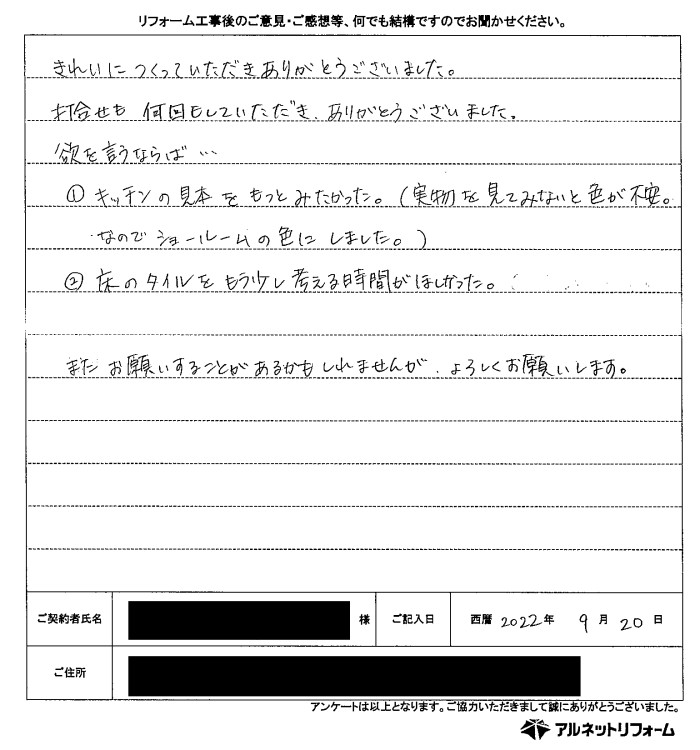 リフォーム工事後のご意見・ご感想等、何でも結構ですのでお聞かせください。
きれいにつくっていただきありがとうございました。
打合せも何回もしていただき、ありがとうございました。
欲を言うならば…
① キッチンの見本をもっとみたかった。(実物を見てみないと色が不安。
なのでショールームの色にしました。)
② 床のタイルをもう少し考える時間がほしかった。
またお願いすることがあるかもしれませんが、よろしくお願いします。
ご契約者氏名 様 ご記入日 西暦 2022年 9月 20日
ご住所
アンケートは以上となります。ご協力いただきまして誠にありがとうございました。
アルネットリフォーム